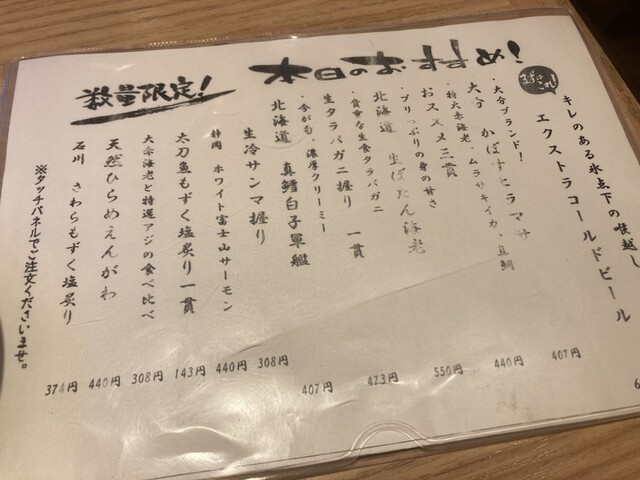 本日のおすすめ！
数量限定！
まずはこれ！
キレのある氷点下の喉越し
エクストラコールドビール
・大分ブランド！
大分 かぼすヒラマサ
・特大赤海老・ムラサキイカ・真鯛
おススメ三貫
・プリっぷりの身の甘さ
北海道 生ぼたん海老
・貴重な生食タラバガニ
生タラバガニ握り 一貫
・今が旬・濃厚クリーミー
北海道 真鱈白子軍艦
生冷サンマ握り
静岡 ホワイト富士山サーモン
太刀魚もずく塩炙り一貫
大赤海老と特選アジの食べ比べ
天然ひらめえんがわ
石川 さわらもずく塩炙り
※タッチパネルでご注文くださいませ。
6
407円
440円
550円
473円
407円
308円
440円
143円
308円
440円
374円